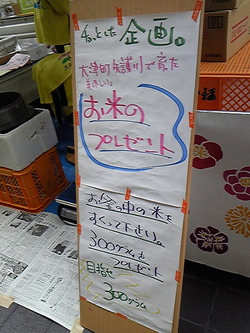 ちょっとした企画。
大津町矢護川で育た
おいしい
お米の
プレゼント
お釜の中の米を
すくって下さい。
300グラムを
プレゼント
目指せ
300グラム